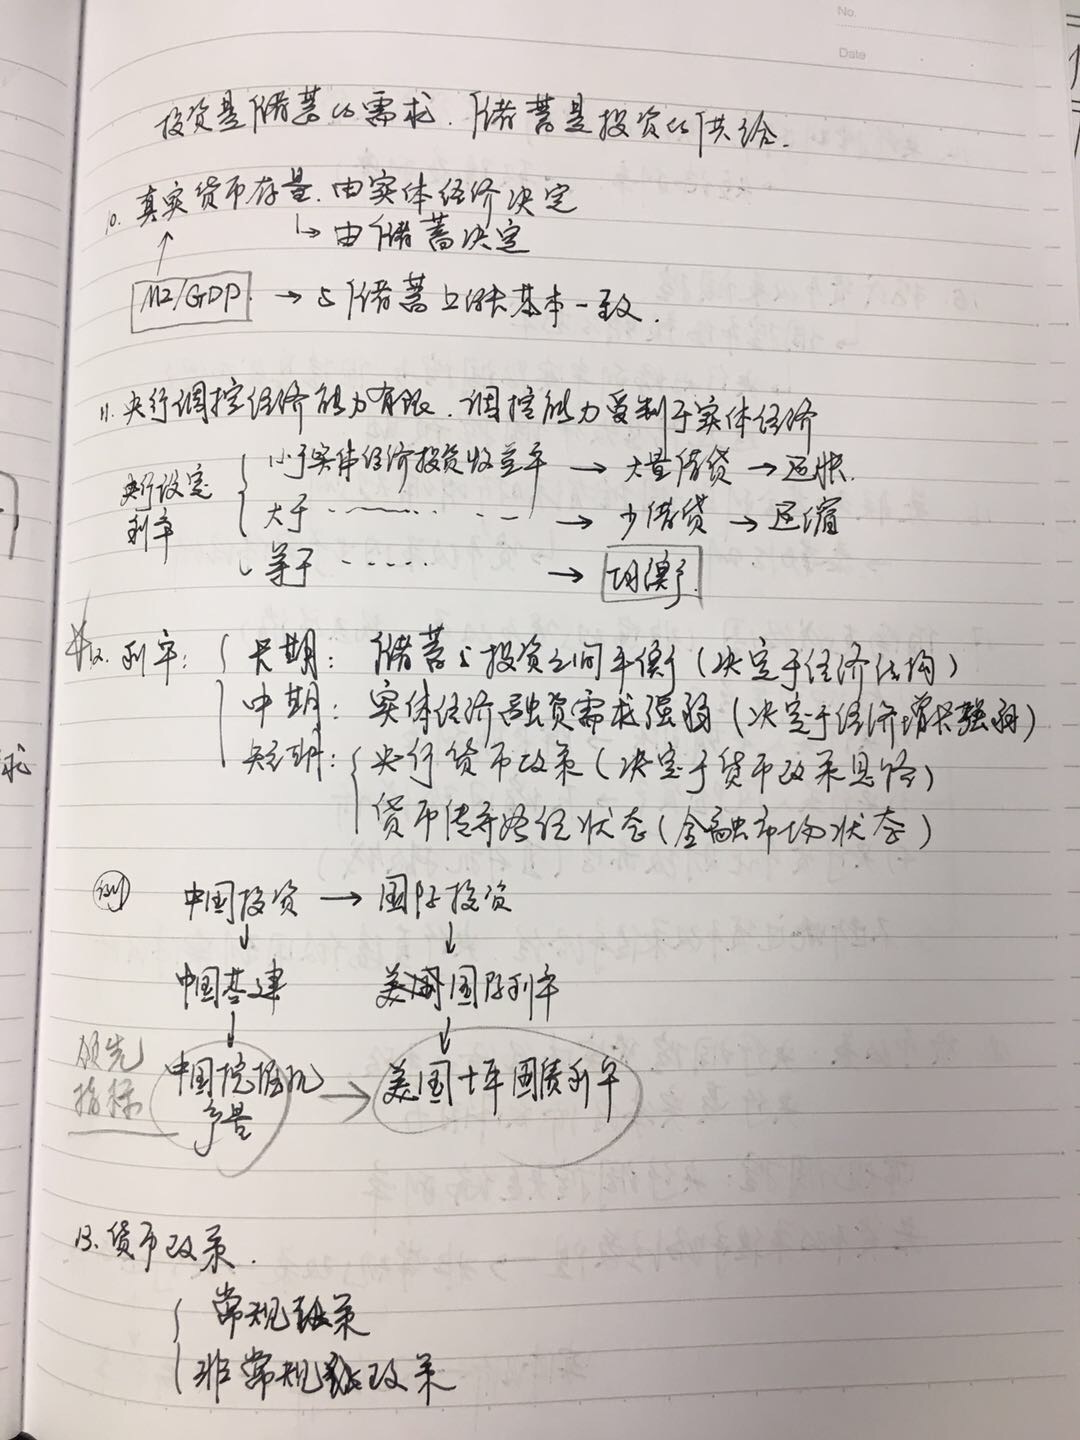 No.
Date
投资是储蓄的需求. 储蓄是投资的供给.
10. 真实货币存量. 由实体经济决定
↳ 由储蓄决定
M2/GDP → 与储蓄上涨基本一致.
11. 央行调控经济能力有限. 调控能力受制于实体经济
央行设定利率 { 小于实体经济投资收益率 → 大量借贷 → 通胀.
大于 ······ → 少借贷 → 通缩
等于 ······ → 均衡
12. 利率: { 长期: 储蓄与投资之间平衡 (决定于经济结构)
中期: 实体经济融资需求强弱 (决定于经济增长强弱)
短期: { 央行货币政策 (决定于货币政策思路)
货币传导路径状态 (金融市场状态)
例 中国投资 → 国际投资
↓ ↓
中国基建 国际利率
↓ ↓
领先指标 中国挖掘机产量 → 美国十年国债利率
13. 货币政策.
{ 常规政策
非常规政策